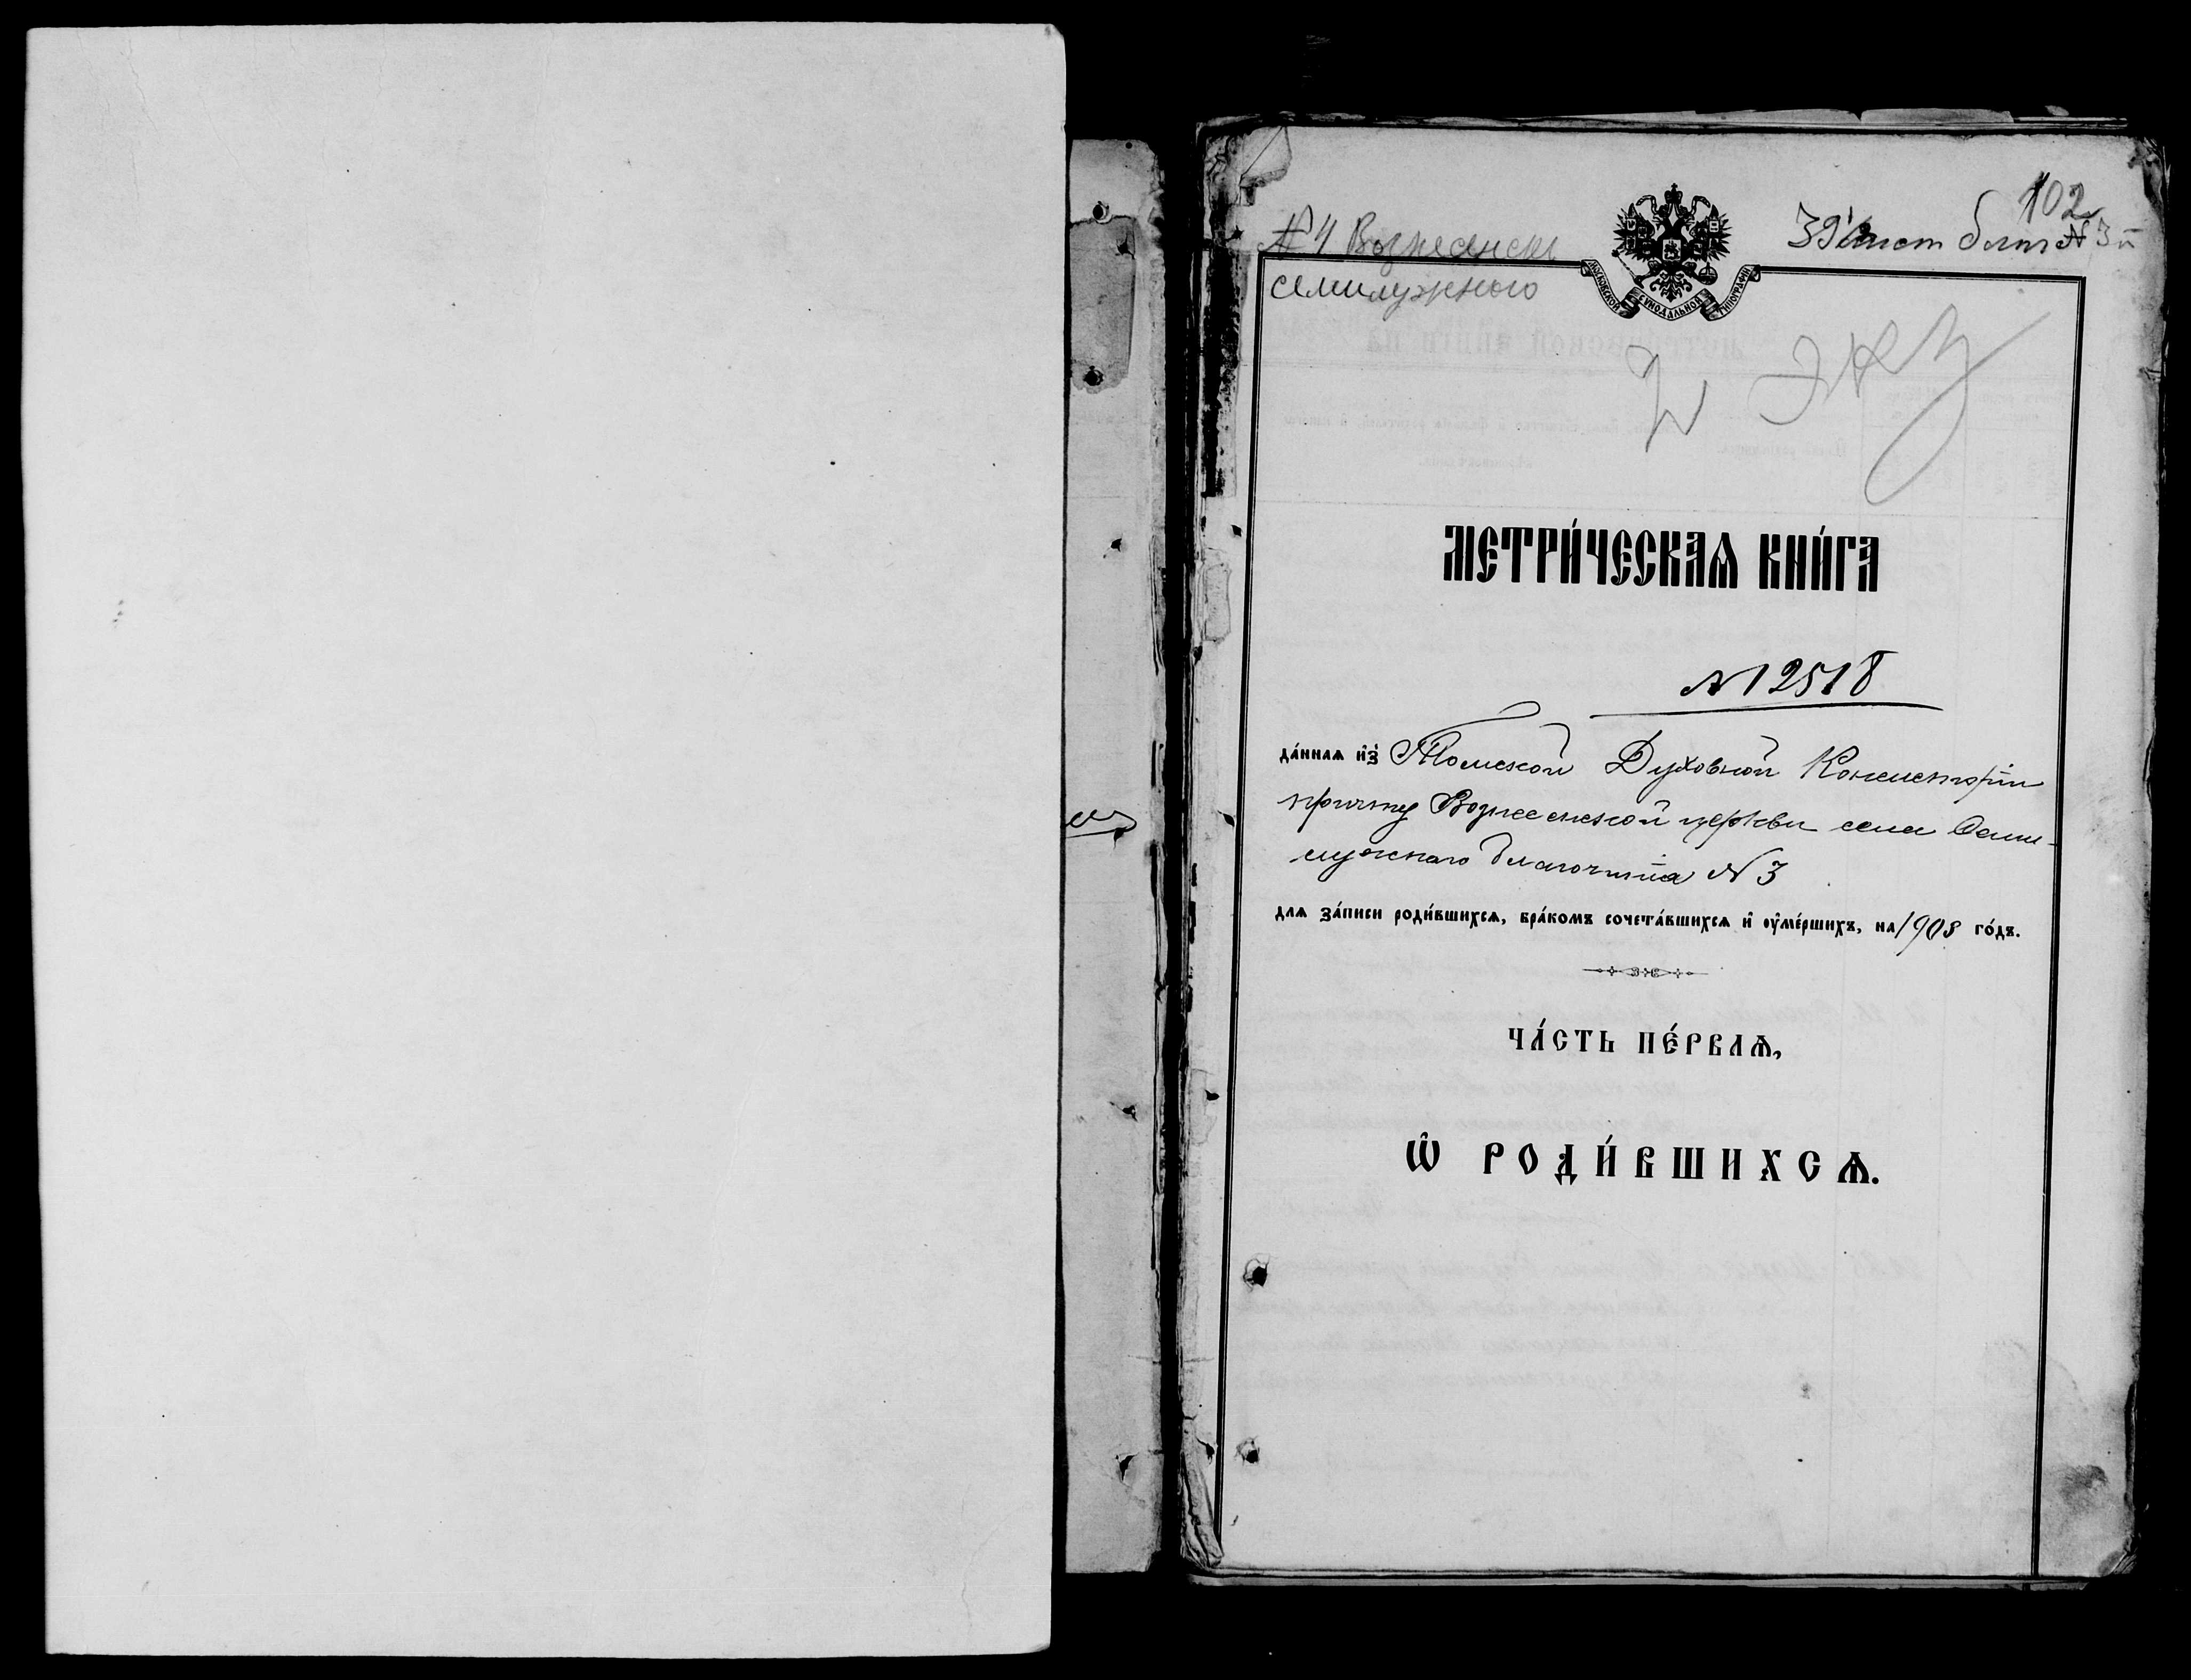 102
№ 4 Вознесенск
39 лист благ № 3й
семилужного
МОСКОВСКОЙ СѴНОДАЛЬНОЙ ТИПОГРАФІИ
МЕТРИ́ЧЕСКАѦ КНИ́ГА
№ 2518
да́ннаѧ и҆з̾ Томской Духовной Консисторіи
причту Вознесенской церкви села Семи-
лужнаго благочинія № 3
длѧ за́писи роди́вшихсѧ, бра́комъ сочета́вшихсѧ и҆ оу҆ме́ршихъ, на 1908 го́дъ.
ЧА́СТЬ ПЕ́РВАѦ,
Ѡ҆ РОДИ́ВШИХСѦ.